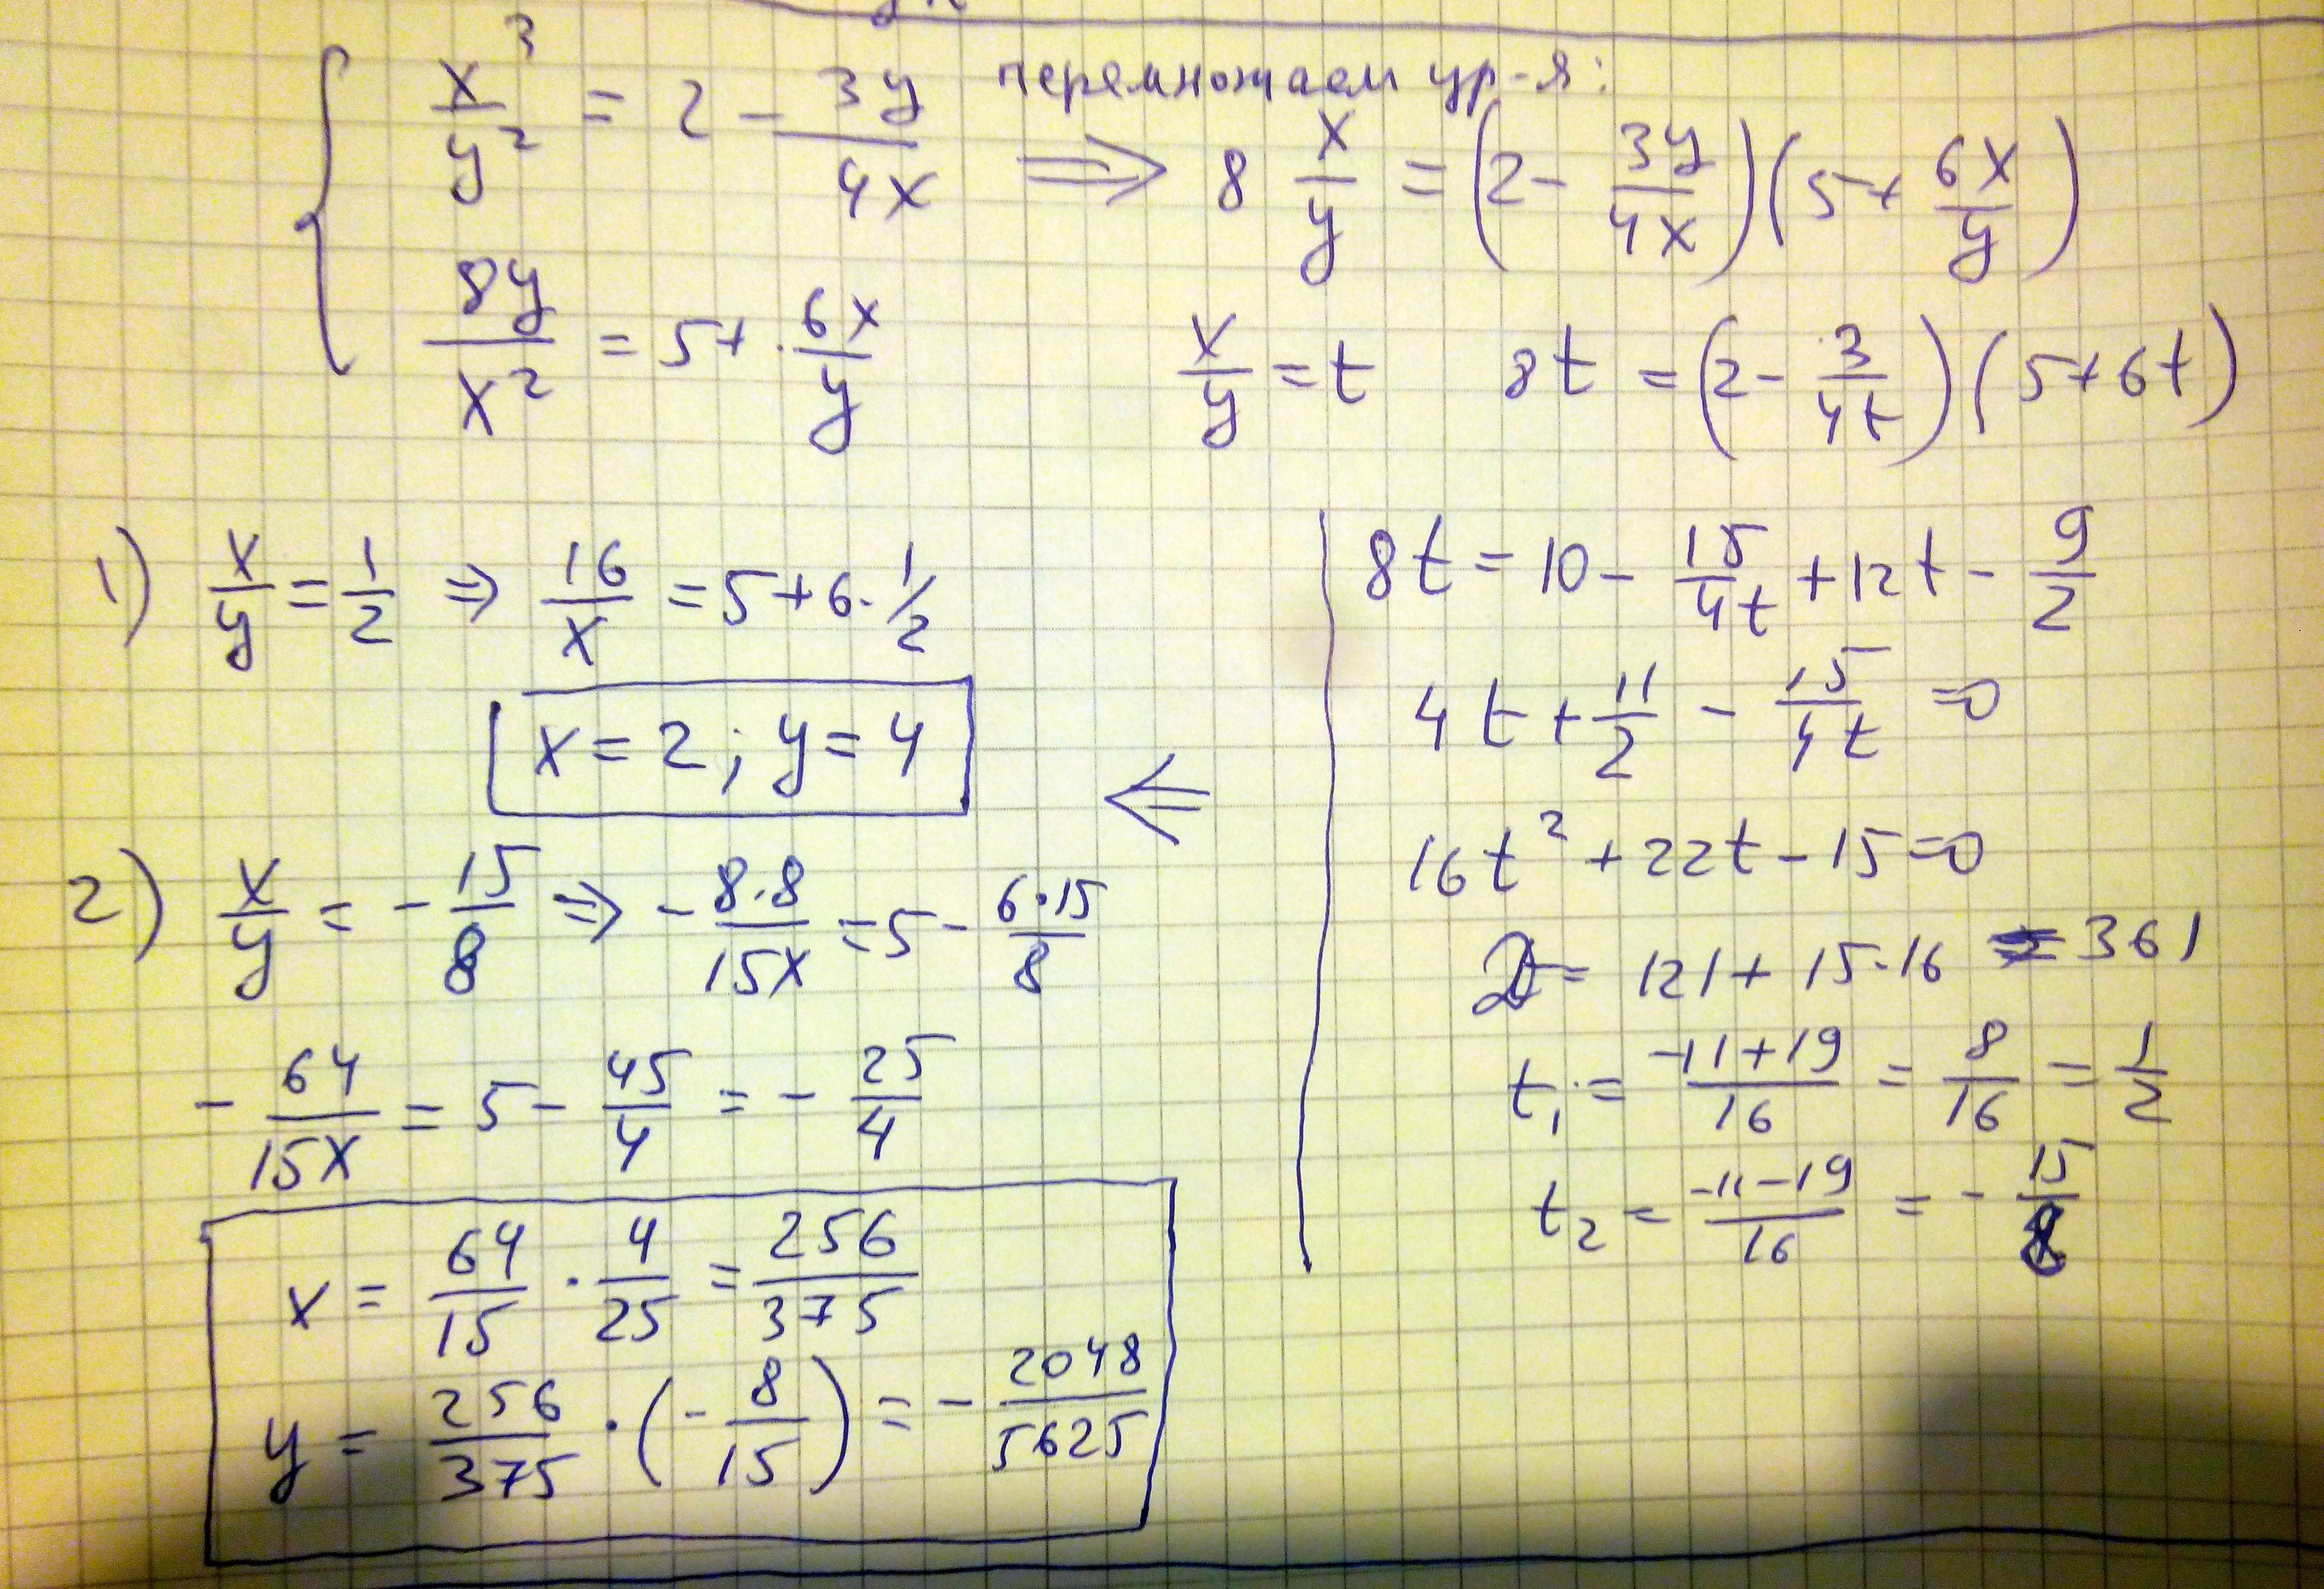 x³/y² = 2 - 3y/4x
8y/x² = 5 + 6x/y
перемножаем ур-я:
⇒ 8 x/y = (2 - 3y/4x)(5 + 6x/y)
x/y = t 8t = (2 - 3/4t)(5 + 6t)
8t = 10 - 15/4t + 12t - 9/2
4t + 11/2 - 15/4t = 0
16t² + 22t - 15 = 0
D = 121 + 15·16 = 361
t₁ = -11+19/16 = 8/16 = 1/2
t₂ = -11-19/16 = - 15/8
⇐
1) x/y = 1/2 ⇒ 16/x = 5 + 6·1/2
x = 2; y = 4
2) x/y = - 15/8 ⇒ - 8·8/15x = 5 - 6·15/8
- 64/15x = 5 - 45/4 = - 25/4
x = 64/15 · 4/25 = 256/375
y = 256/375 · (- 8/15) = - 2048/5625